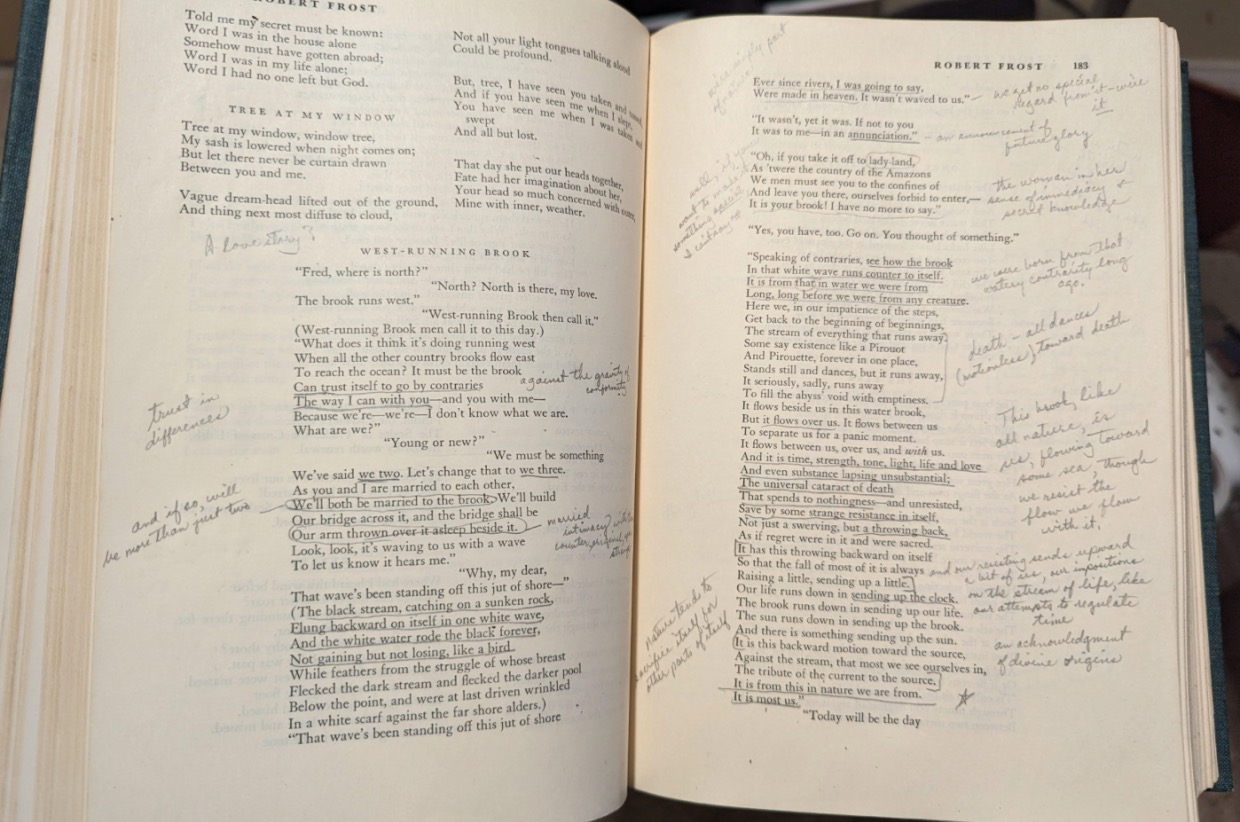 ROBERT FROST
Told me my secret must be known:
Word I was in the house alone
Somehow must have gotten abroad;
Word I was in my life alone;
Word I had no one left but God.
TREE AT MY WINDOW
Tree at my window, window tree,
My sash is lowered when night comes on;
But let there never be curtain drawn
Between you and me.
Vague dream-head lifted out of the ground,
And thing next most diffuse to cloud,
Not all your light tongues talking aloud
Could be profound.
But, tree, I have seen you taken and
And if you have seen me when I slept,
You have seen me when I was taken and
swept
And all but lost.
That day she put our heads together,
Fate had her imagination about her,
Your head so much concerned with outer,
Mine with inner, weather.
A love story?
WEST-RUNNING BROOK
"Fred, where is north?"
"North? North is there, my love.
The brook runs west."
"West-running Brook then call it."
(West-running Brook men call it to this day.)
"What does it think it's doing running west
When all the other country brooks flow east
To reach the ocean? It must be the brook
Can trust itself to go by contraries
against the gravity of
conformity
The way I can with you—and you with me—
Because we're—we're—I don't know what we are.
What are we?"
trust in
differences
"Young or new?"
"We must be something
We've said we two. Let's change that to we three.
As you and I are married to each other,
We'll both be married to the brook. We'll build
Our bridge across it, and the bridge shall be
Our arm thrown over it asleep beside it.
and if so, will
be more than just two
married
intimacy
Look, look, it's waving to us with a wave
To let us know it hears me."
"Why, my dear,
That wave's been standing off this jut of shore—"
(The black stream, catching on a sunken rock,
Flung backward on itself in one white wave,
And the white water rode the black forever,
Not gaining but not losing, like a bird
While feathers from the struggle of whose breast
Flecked the dark stream and flecked the darker pool
Below the point, and were at last driven wrinkled
In a white scarf against the far shore alders.)
"That wave's been standing off this jut of shore
ROBERT FROST 183
Ever since rivers, I was going to say,
Were made in heaven. It wasn't waved to us."
we get no special
regard from it—we're
it
"It wasn't, yet it was. If not to you
It was to me—in an annunciation."
an announcement of
future glory
"Oh, if you take it off to lady-land,
As 'twere the country of the Amazons
We men must see you to the confines of
And leave you there, ourselves forbid to enter,—
It is your brook! I have no more to say."
well, if you
want to make
something special
I can't say no
the woman in her
sense of immediacy &
secret knowledge
"Yes, you have, too. Go on. You thought of something."
"Speaking of contraries, see how the brook
In that white wave runs counter to itself.
It is from that in water we were from
Long, long before we were from any creature.
we were born from that
watery contrarity long
ago.
Here we, in our impatience of the steps,
Get back to the beginning of beginnings,
The stream of everything that runs away.
Some say existence like a Pirouot
And Pirouette, forever in one place,
Stands still and dances, but it runs away,
It seriously, sadly, runs away
To fill the abyss' void with emptiness.
death — all dances
(motionless) toward death
It flows beside us in this water brook,
But it flows over us. It flows between us
To separate us for a panic moment.
It flows between us, over us, and with us.
And it is time, strength, tone, light, life and love
And even substance lapsing unsubstantial;
The universal cataract of death
That spends to nothingness—and unresisted,
Save by some strange resistance in itself,
Not just a swerving, but a throwing back,
As if regret were in it and were sacred.
This brook, like
all nature, is
us, flowing toward
some sea, though
we resist the
flow we flow
with it,
It has this throwing backward on itself
So that the fall of most of it is always
Raising a little, sending up a little.
Our life runs down in sending up the clock.
The brook runs down in sending up our life.
The sun runs down in sending up the brook.
And there is something sending up the sun.
and our resisting sends upward
a bit of us, our impositions
on the stream of life, like
our attempts to regulate
time
Nature tends to
sacrifice itself for
other parts of itself
It is this backward motion toward the source,
Against the stream, that most we see ourselves in,
The tribute of the current to the source.
It is from this in nature we are from.
It is most us."
an acknowledgment
of divine origins
"Today will be the day